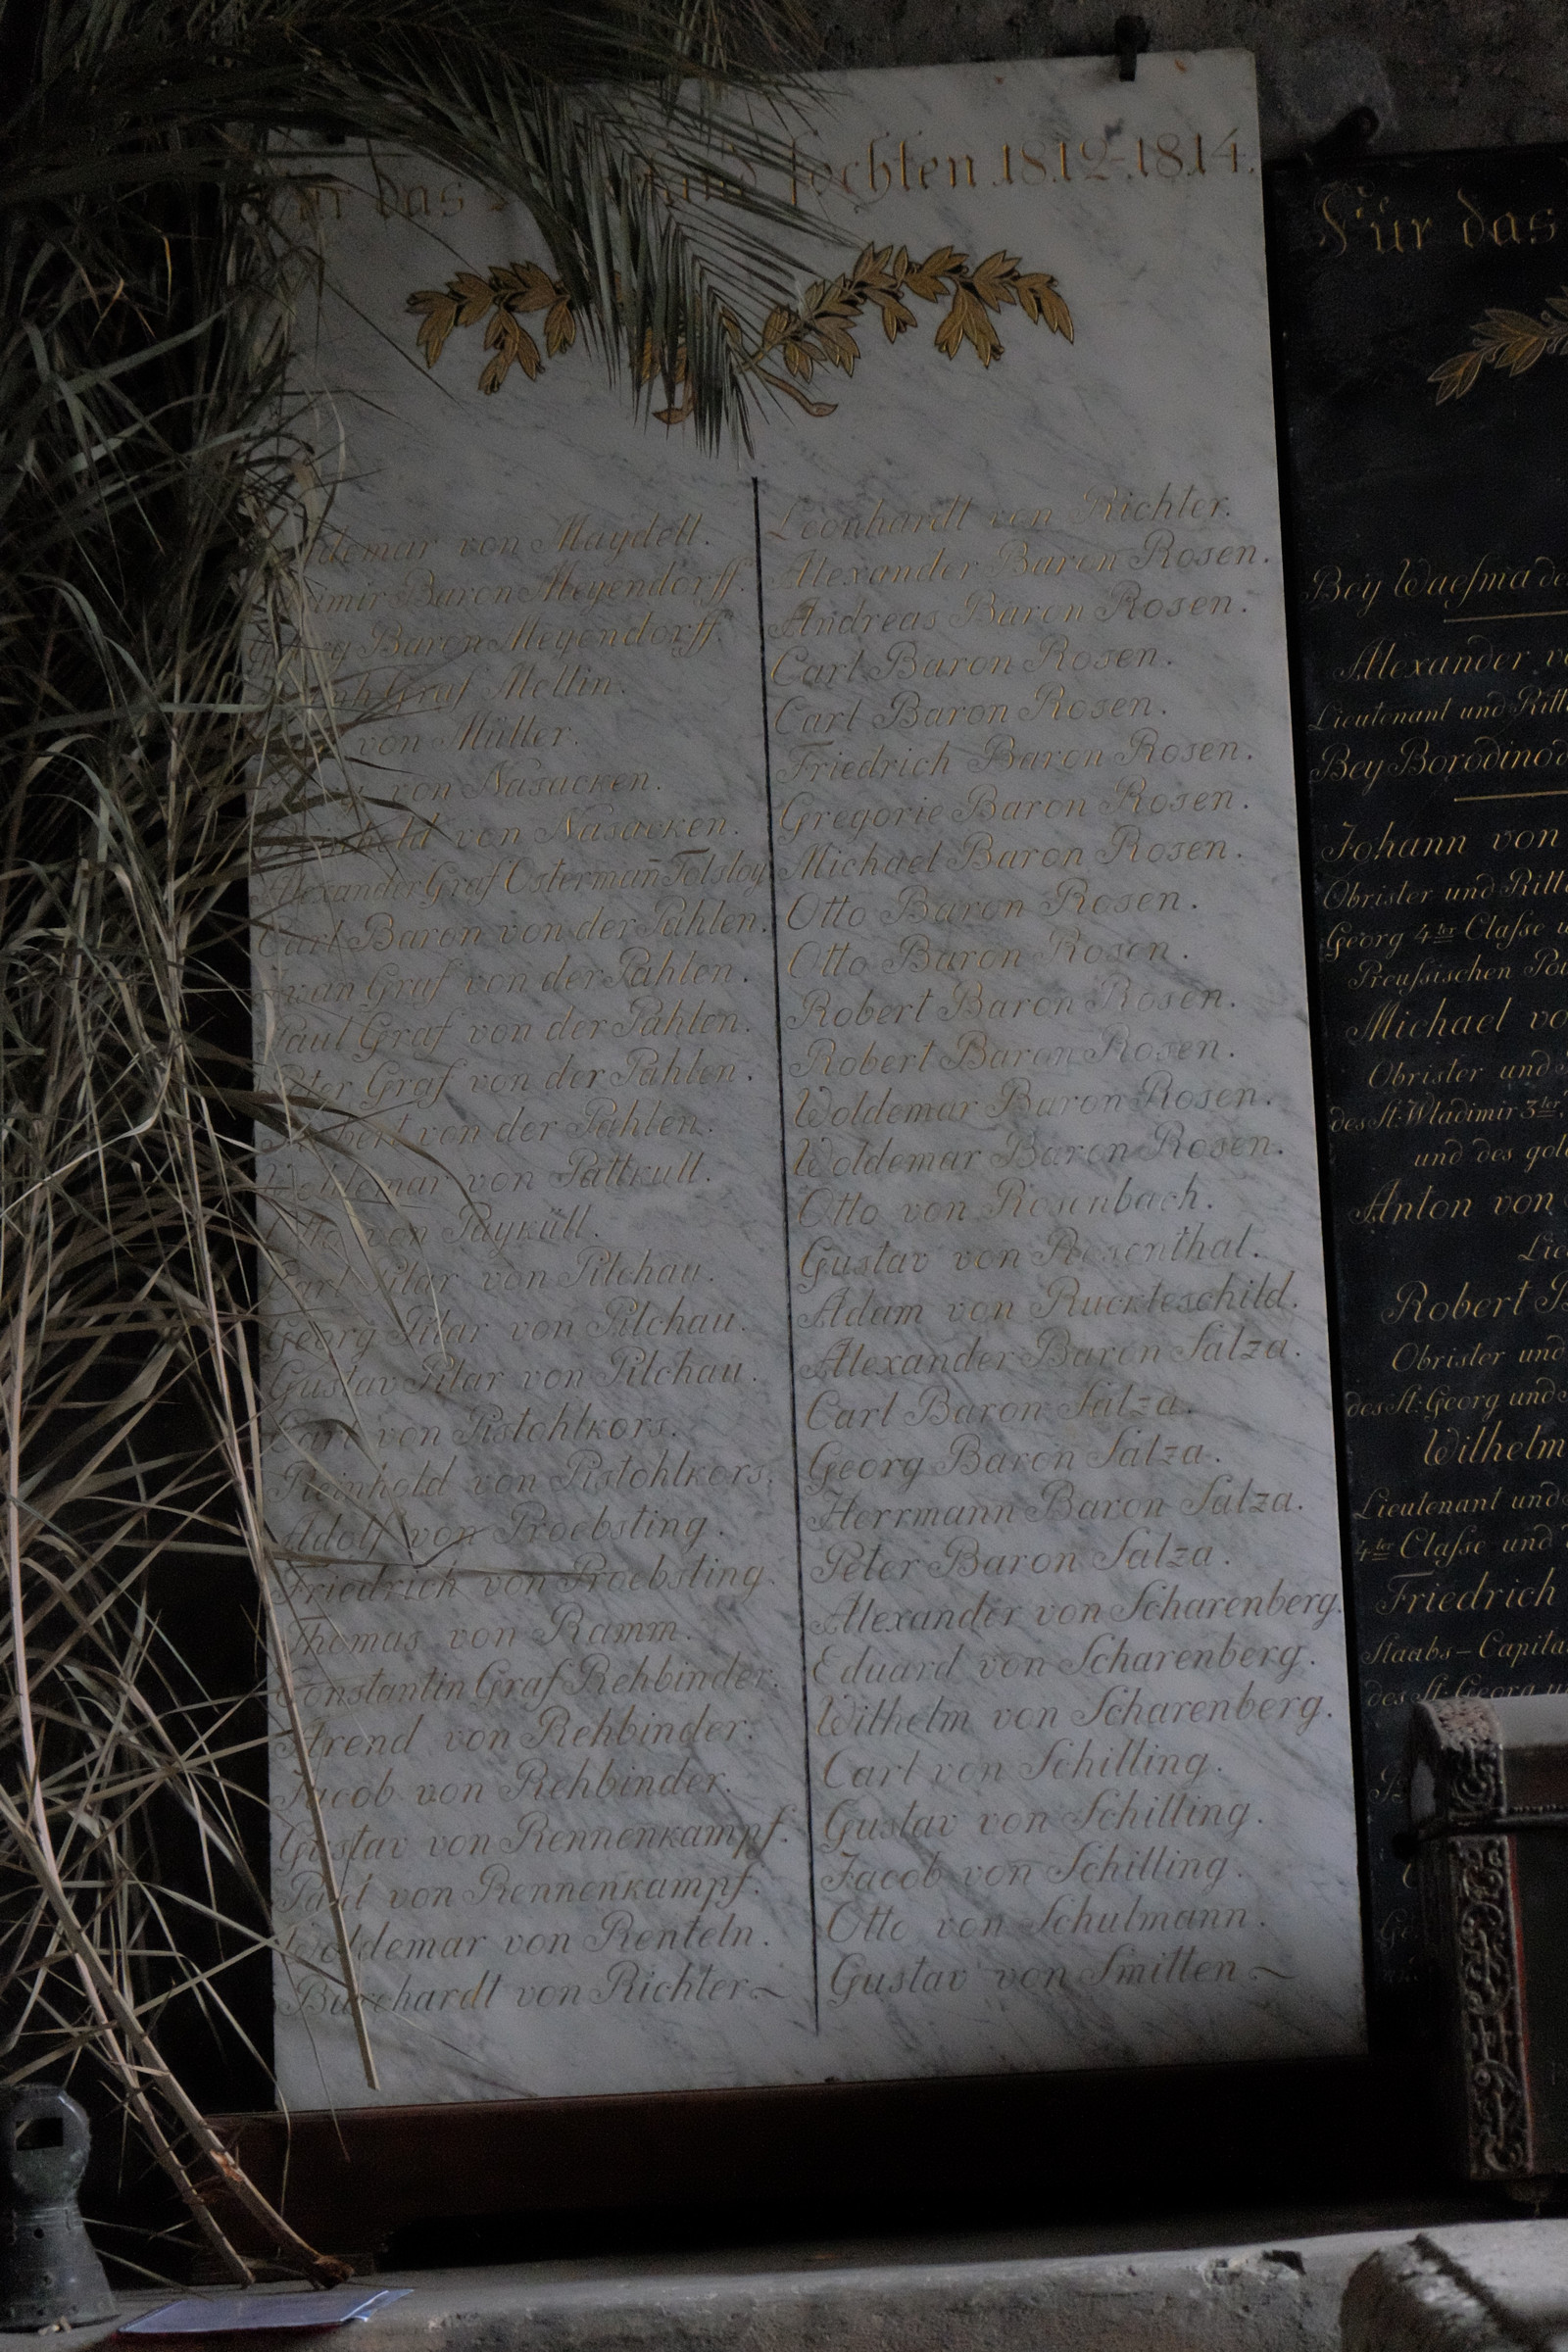 das fochten 1812-1814.
von Maydell.
Baron Meyendorff.
Baron Meyendorff.
Graf Mellin.
von Müller.
von Nasacken.
von Nasacken.
Alexander Graf Ostermañ Tolstoy
Carl Baron von der Pahlen.
Graf von der Pahlen.
Paul Graf von der Pahlen.
Peter Graf von der Pahlen.
von der Pahlen.
Woldemar von Pattkull.
Otto von Payküll.
Carl Pilar von Pilchau.
Georg Pilar von Pilchau.
Gustav Pilar von Pilchau.
Carl von Pistohlkors.
Reinhold von Pistohlkors.
Adolf von Proebsting.
Friedrich von Proebsting.
Thomas von Ramm.
Constantin Graf Rehbinder.
Arend von Rehbinder.
Jacob von Rehbinder.
Gustav von Rennenkampf.
Paul von Rennenkampf.
Woldemar von Renteln.
Burchardt von Richter~
Leonhardt von Richter.
Alexander Baron Rosen.
Andreas Baron Rosen.
Carl Baron Rosen.
Carl Baron Rosen.
Friedrich Baron Rosen.
Gregorie Baron Rosen.
Michael Baron Rosen.
Otto Baron Rosen.
Otto Baron Rosen.
Robert Baron Rosen.
Robert Baron Rosen.
Woldemar Baron Rosen.
Woldemar Baron Rosen.
Otto von Rosenbach.
Gustav von Rosenthal.
Adam von Ruckteschild.
Alexander Baron Salza.
Carl Baron Salza.
Georg Baron Salza.
Herrmann Baron Salza.
Peter Baron Salza.
Alexander von Scharenberg.
Eduard von Scharenberg.
Wilhelm von Scharenberg.
Carl von Schilling.
Gustav von Schilling.
Jacob von Schilling.
Otto von Schulmann.
Gustav von Smitten~
Für das
Bey Waeſma
Alexander
Lieutenant und
Bey Borodino
Johann von
Obrister und
Georg 4ter Claſse
Preuſsischen
Michael
Obrister und
des St: Wladimir 3ter
und des
Anton von
Robert
Obrister und
des St: Georg und
Wilhelm
Lieutenant und
4ter Claſse und
Friedrich
Staabs-
des St: Georg